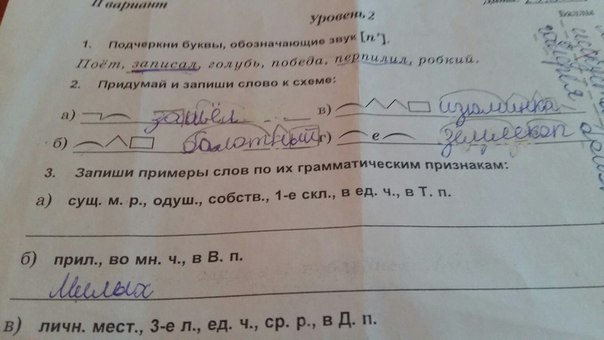 II вариант
Уровень 2
1. Подчеркни буквы, обозначающие звук [п'].
Поёт, записал, голубь, победа, перпилил, робкий.
2. Придумай и запиши слово к схеме:
а) зашёл в) изюминка
б) болотный г) е землекоп
3. Запиши примеры слов по их грамматическим признакам:
а) сущ. м. р., одуш., собств., 1-е скл., в ед. ч., в Т. п.
б) прил., во мн. ч., в В. п.
Милых
в) личн. мест., 3-е л., ед. ч., ср. р., в Д. п.